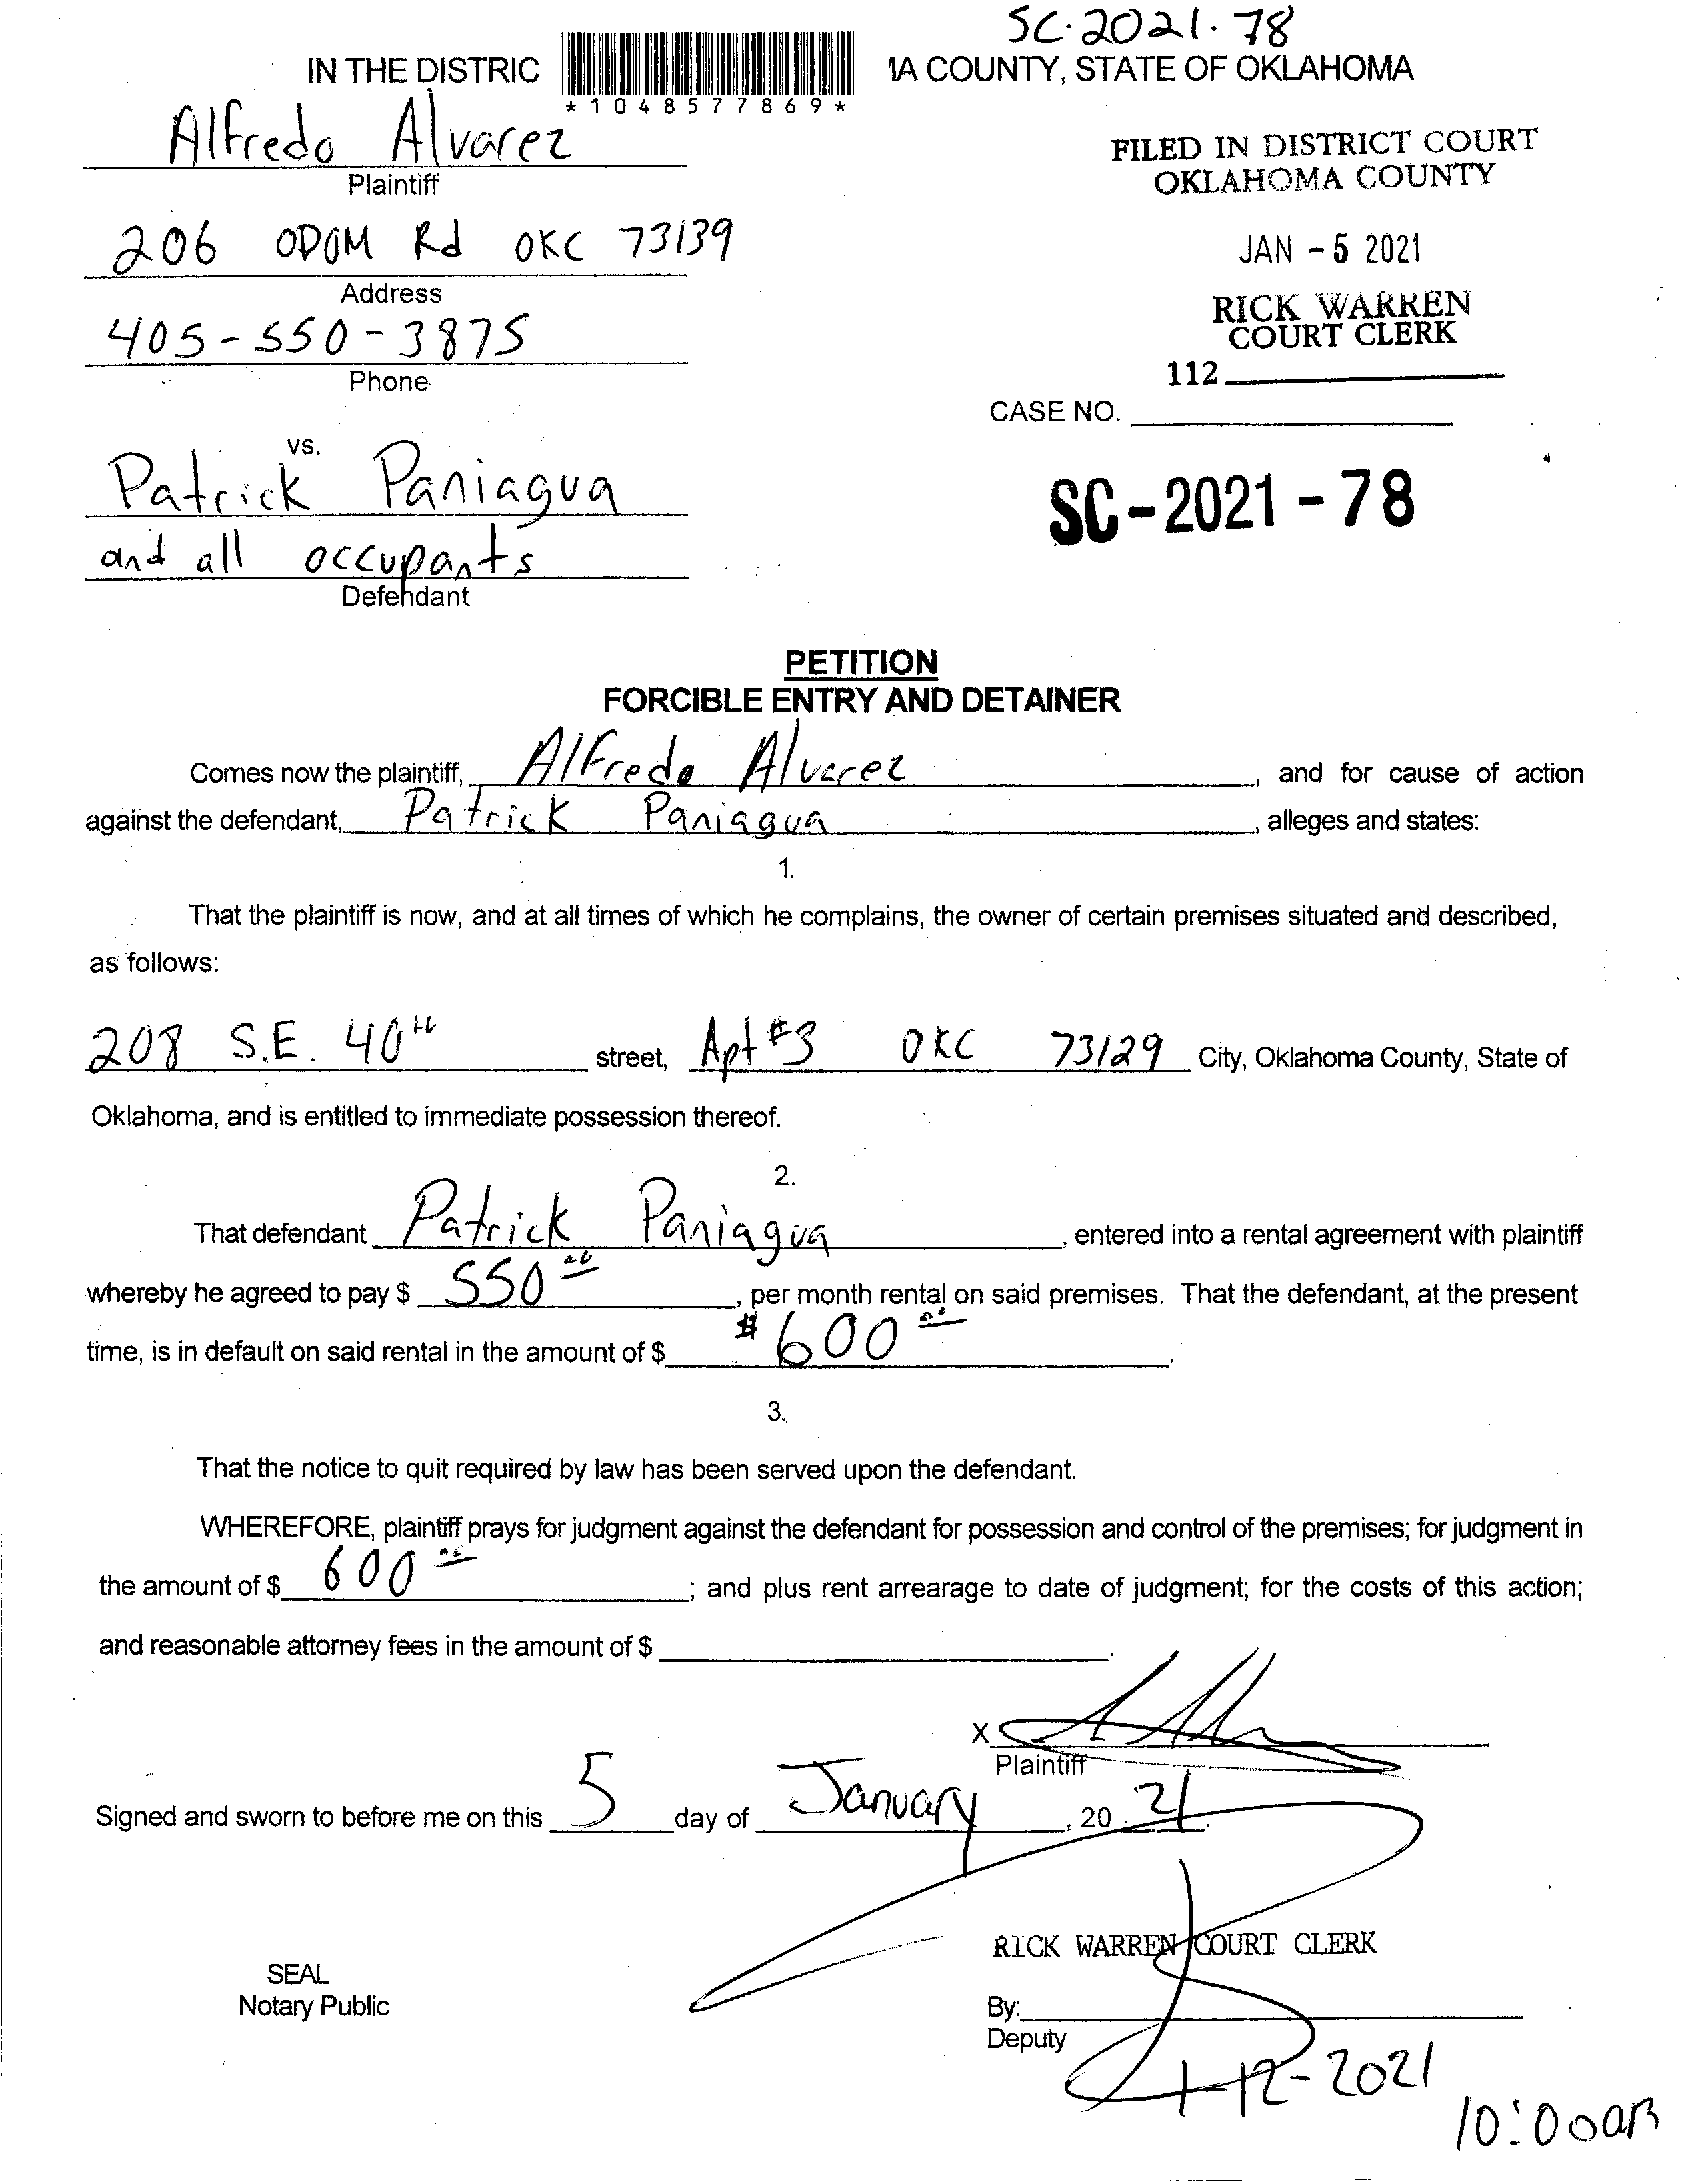 SC-2021-78
IN THE DISTRIC
IA COUNTY, STATE OF OKLAHOMA
*1048577869*
Alfredo Alvarez
Plaintiff
FILED IN DISTRICT COURT
OKLAHOMA COUNTY
206 ODOM Rd OKC 73139
Address
JAN - 5 2021
405-550-3875
Phone
RICK WARREN
COURT CLERK
112
CASE NO.
vs.
Patrick Paniagua
and all occupants
Defendant
SC-2021-78
PETITION
FORCIBLE ENTRY AND DETAINER
Comes now the plaintiff, Alfredo Alvarez, and for cause of action
against the defendant, Patrick Paniagua, alleges and states:
1.
That the plaintiff is now, and at all times of which he complains, the owner of certain premises situated and described,
as follows:
208 S.E. 40th street, Apt #3 OKC 73129 City, Oklahoma County, State of
Oklahoma, and is entitled to immediate possession thereof.
2.
That defendant Patrick Paniagua, entered into a rental agreement with plaintiff
whereby he agreed to pay $ 550.00, per month rental on said premises. That the defendant, at the present
time, is in default on said rental in the amount of $ #600.00.
3.
That the notice to quit required by law has been served upon the defendant.
WHEREFORE, plaintiff prays for judgment against the defendant for possession and control of the premises; for judgment in
the amount of $ 600.00; and plus rent arrearage to date of judgment; for the costs of this action;
and reasonable attorney fees in the amount of $.
X
Plaintiff
Signed and sworn to before me on this 5 day of January, 20 21.
RICK WARREN COURT CLERK
SEAL
Notary Public
By:
Deputy
1-12-2021
10:00am